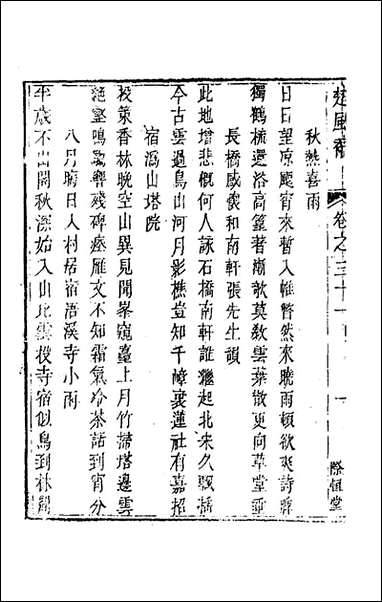 楚風補 卷之三十一
秋熱喜雨
日日望凉颸宵來暫入帷瞥然來驟雨頓欲爽詩脾
獨鶴梳還浴高篁著漸欹莫敎雲葉散更向草堂垂
長橋感舊和南軒張先生韻
此地增悲慨何人詠石橋南軒誰繼起北宋久飄搖
今古雲過鳥山河月影樵豈知千嶂裏蓮社有嘉招
宿溈山塔院
投策香林晚空山異見聞峯窺臺上月竹掃塔邊雲
絕壑鳴歌殘碑瘞雁文不知霜氣冷茶話到宵分
八月晦日入村居宿浯溪寺小雨
半歲不出閣秋深始入山比雲投寺宿似鳥到林
際恒堂